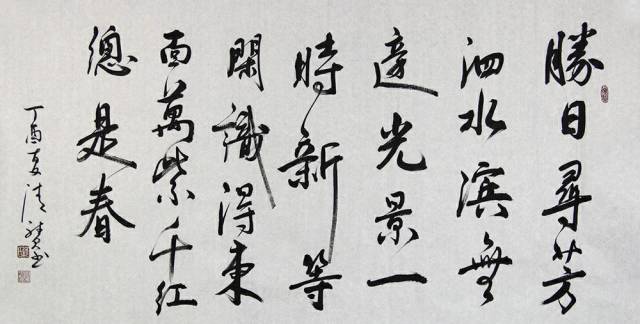 勝日尋芳
泗水滨無
邊光景一
時新等
閑識得東
面萬紫千红
總是春
丁酉夏清